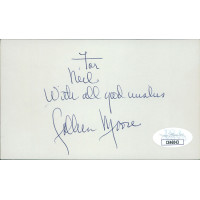 For
Neil
With all good wishes
Colleen Moore